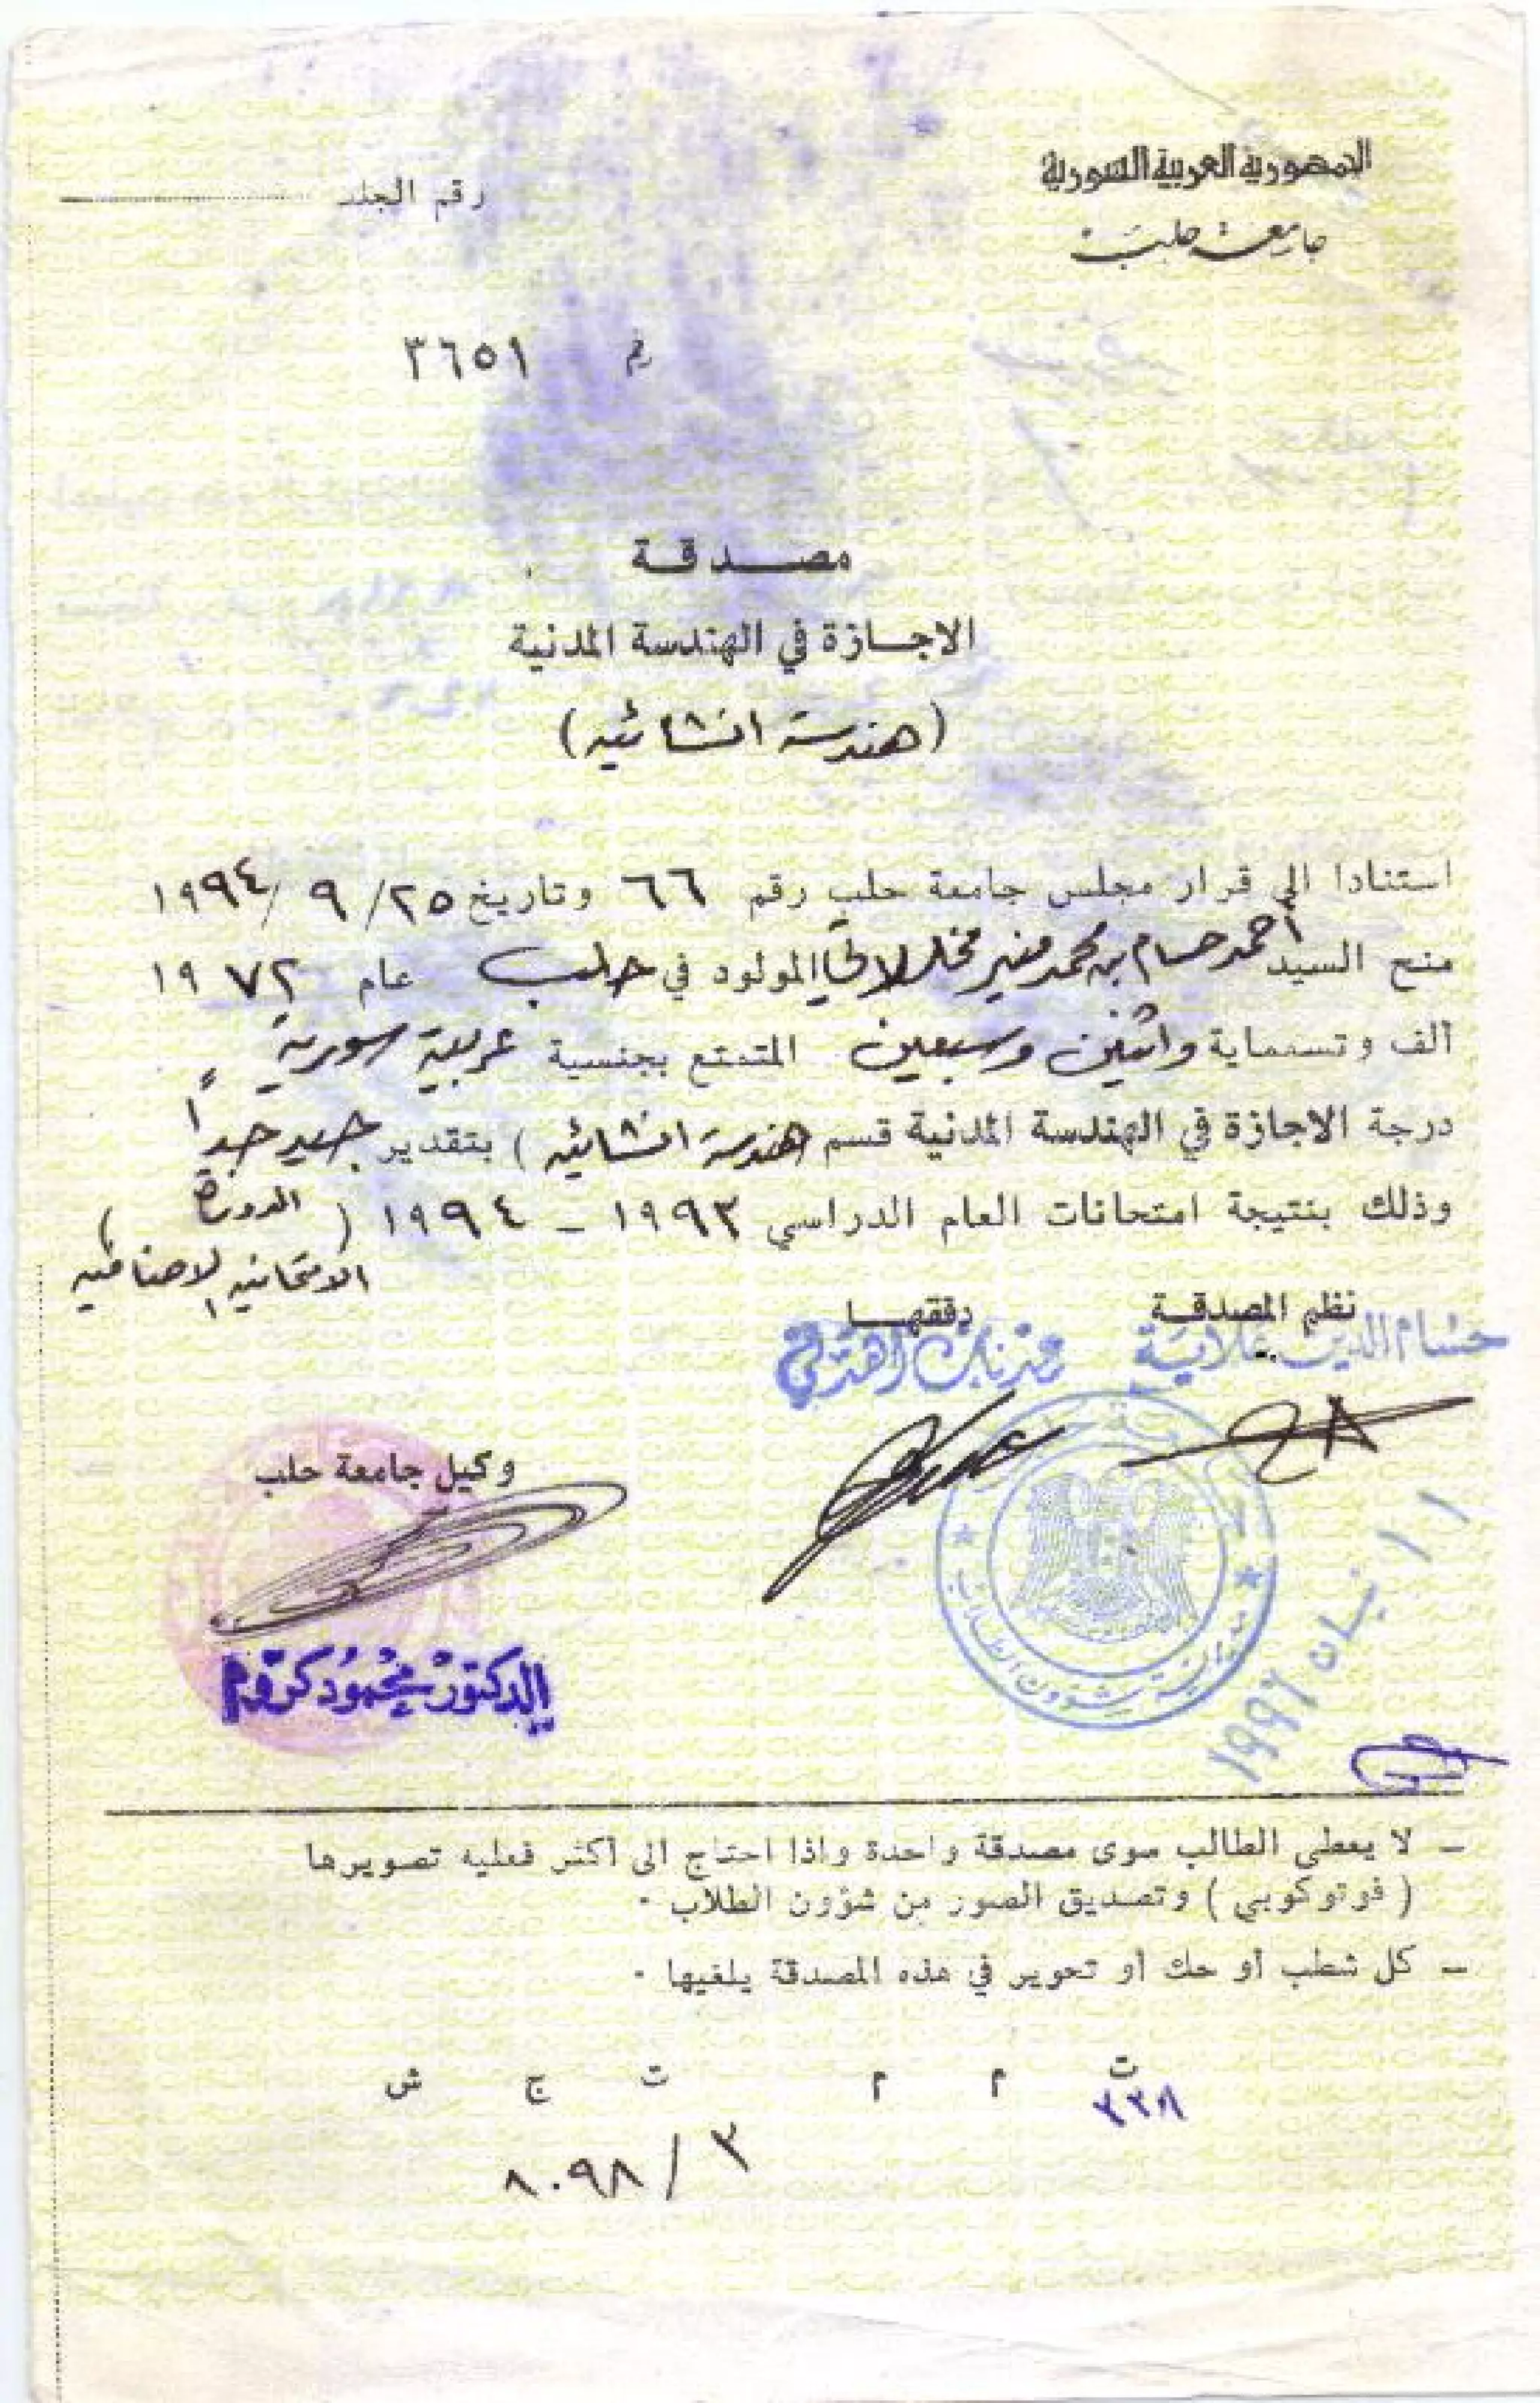 الجمهورية العربية السورية
جامعة حلب
رقم الجلد
رقم ٣٦٥١
مصدقة
الاجازة في الهندسة المدنية
(هندسة انشائيه)
استنادا الى قرار مجلس جامعة حلب رقم ٦٦ وتاريخ ٢٥/ ٩ /١٩٩٤
منح السيد أحمد حسام بن محمد منير مخللاتي المولود في حلب عام ١٩٧٢
ألف وتسعماية واثنين وسبعين المتمتع بجنسية عربية سورية
درجة الاجازة في الهندسة المدنية قسم (هندسة انشائيه) بتقدير جيد جداً
وذلك بنتيجة امتحانات العام الدراسي ١٩٩٣ - ١٩٩٤ ( الدورة
الامتحانيه الاضافيه )
نظم المصدقة دققها
حسام الدين علايية عدنان
وكيل جامعة حلب
مديرية شؤون الطلاب
١١ نيسان ١٩٩٦
الدكتور محمود كروم
- لا يعطى الطالب سوى مصدقة واحدة واذا احتاج الى أكثر فعليه تصويرها
( فوتوكوبي ) وتصديق الصور من شؤون الطلاب .
- كل شطب أو حك أو تحوير في هذه المصدقة يلغيها .
ت م م ت ج ش
٣٣٨
٣ / ٨٠٩٨